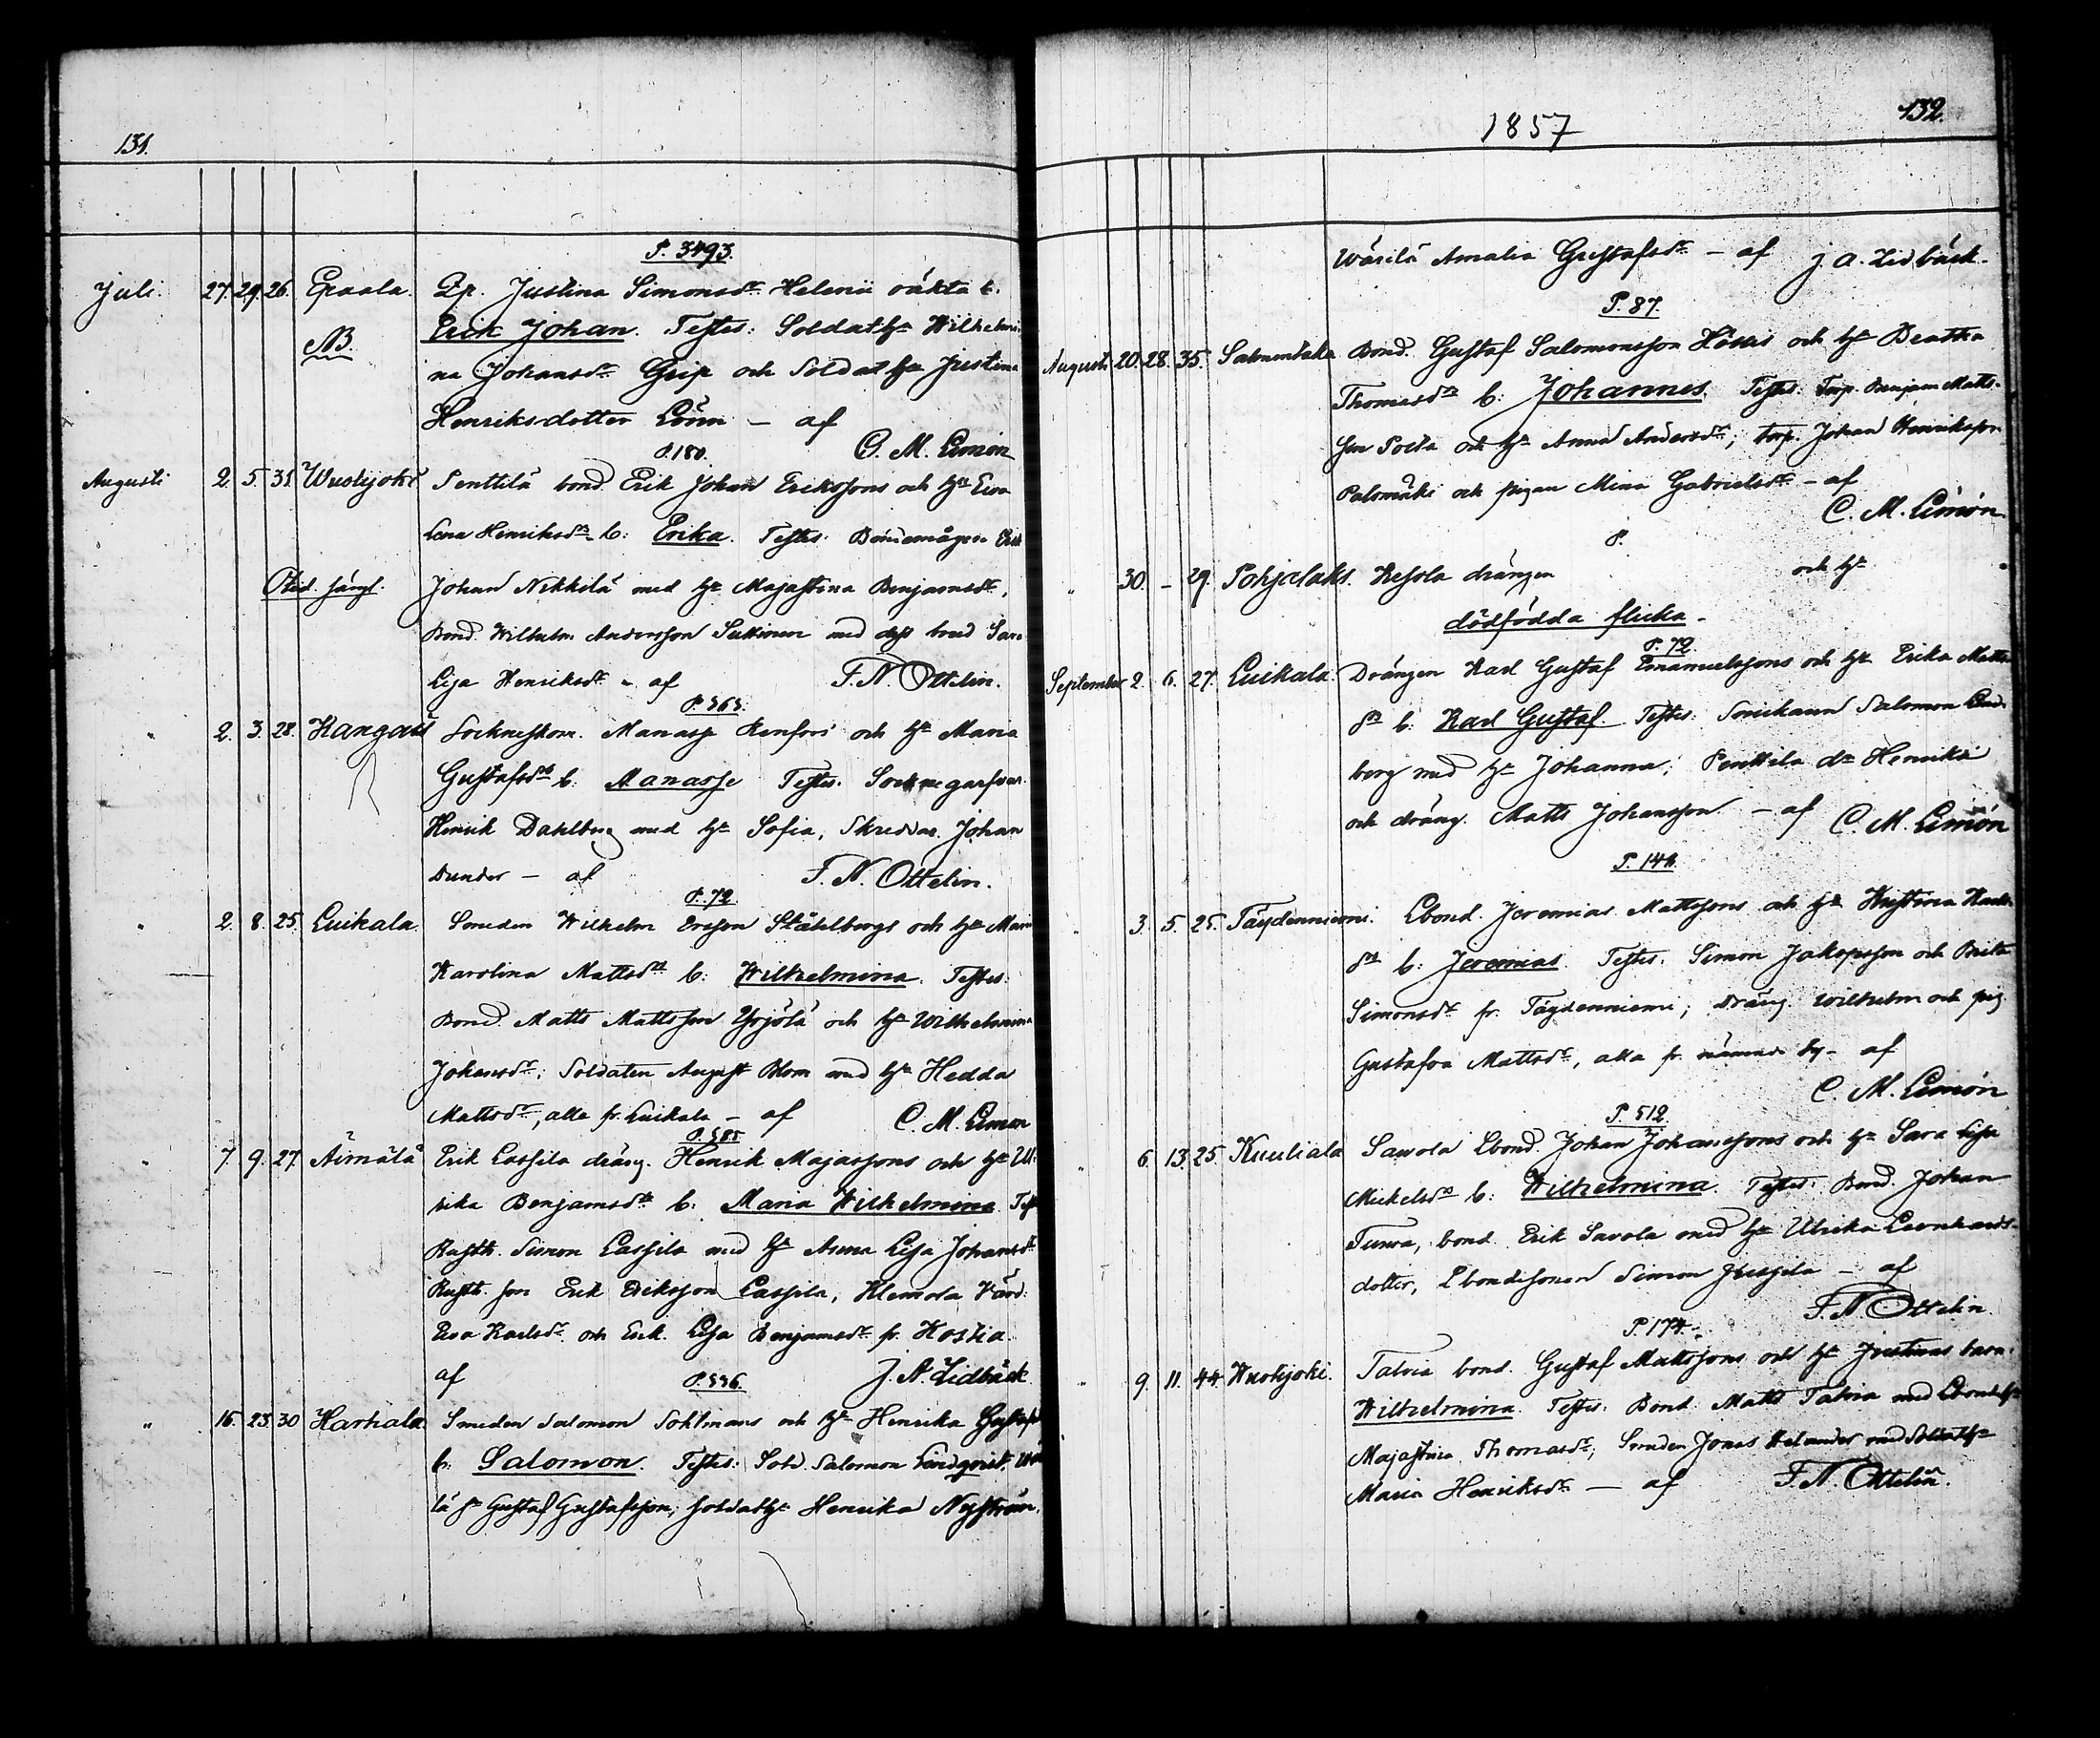 131.
P. 3493.
Juli. 27. 29. 26. Epaala. Qp. Justina Simonsdr Helenii oäkta b.
NB. Erick Johan. Testes: Soldathu Wilhelmi-
na Johansdr Grip och Soldat hu Justina
Henriksdotter Lönn — af
C. M. Limón
P. 180.
Augusti 2. 5. 31. Wuolijoki Penttilä bond. Erik Johan Erikssons och hu Eva
Lena Henriksdr b: Erika. Testes: Bondemågen Erik
Johan Nikkilä med hu Majastina Benjamsdr,
Bond. Wilhelm Andersson Suttinen med dess brud Sara
Lisa Henriksdr - af F. N. Ottelin.
P. 363.
" 2. 3. 28. Kangais Socknesskom. Manasse Renfors och hu Maria
Gustafsdr b: Manasse Testes: Socknegarfvar.
Henrik Dahlberg med hu Sofia, Skreddar. Johan
Dunder — af F. N. Ottelin.
P. 72.
" 2. 8. 25. Luikala. Smeden Wilhelm Ersson Ståhlbergs och hu Maria
Karolina Mattsdr b: Wilhelmina. Testes:
Bond. Matts Mattsson Yrjölä och hu Wilhelmina
Johansdr; Soldaten August Blom med hu Hedda
Mattsdr, alla fr. Luikala — af C. M. Limon
P. 585
" 7. 9. 27. Äimälä Erik Lassila dräng. Henrik Majassons och hu Ul-
rika Benjamsdr b: Maria Wilhelmina. Test
Rusth. Simon Lassila med hu Anna Lisa Johansdr
Rusth. son Erik Eriksson Lassila, Klemola Värd.
Eva Karlsdr och Enk. Lisa Benjamsdr fr. Hostia.
af J. A. Lidbäck
P. 336.
" 16. 23. 30 Harhala. Smeden Salomon Sohlmans och hu Henrika Gustafsd
b: Salomon. Testes: Sold. Salomon Lindqvist,
lä sn Gustaf Gustafsson; soldathu Henrika Nyström,
1857
132.
Wärilä Amalia Gustafsdr — af J. A. Lidbäck.
P. 87.
Augusti 20. 28. 35. Salmentaka Bond. Gustaf Salomonsson Hössis och hu Beatha
Thomasdr b: Johannes. Testes: Torp. Benjam Matts-
son Poita och hu Anna Andersdr; torp. Johan Henriksson
Palomäki och pigan Mina Gabrielsdr — af
C. M. Limón.
P.
" 30. — 29. Pohjalaks. Kesola drängen och hu
dödfödda flicka.
P. 72.
September 2. 6. 27. Luikala. Drängen Karl Gustaf Emanuelssons och hu Erika Matts-
dr b: Karl Gustaf. Testes: Snickaren Salomon Lind-
berg med hu Johanna; Penttilä dr Henrika
och dräng. Matts Johansson — af C. M. Limón
P. 146.
" 3. 5. 25. Täydenniemi. Lbond. Jeremias Mattssons och hu Kristina Karls
dr b: Jeremias. Testes: Simon Jakopsson och Brita
Simonsdr fr. Täydenniemi; Dräng. Wilhelm och pig.
Gustafva Mattsdr, alla fr. nämnde by — af
C. M. Limón
P. 512.
" 6. 13. 25. Kuuliala Sawola Lbond. Johan Johanssons och hu Sara Lisa
Mickelsdr b: Wilhelmina. Testes: Bond. Johan
Turva, bond. Erik Savola med hu Ulrika Leonhards-
dotter, Lbondesonen Simon Jussila — af
F. N. Ottelin.
P. 174.
" 9. 11. 44. Wuolijoki. Talvia bond. Gustaf Mattssons och hu Justinas barn.
Wilhelmina. Testes: Bond. Matts Talvia med Lbondehu
Majastina Thomasdr; Smeden Jonas Helander med Soldathu
Maria Henriksdr — af F. N. Ottelin.